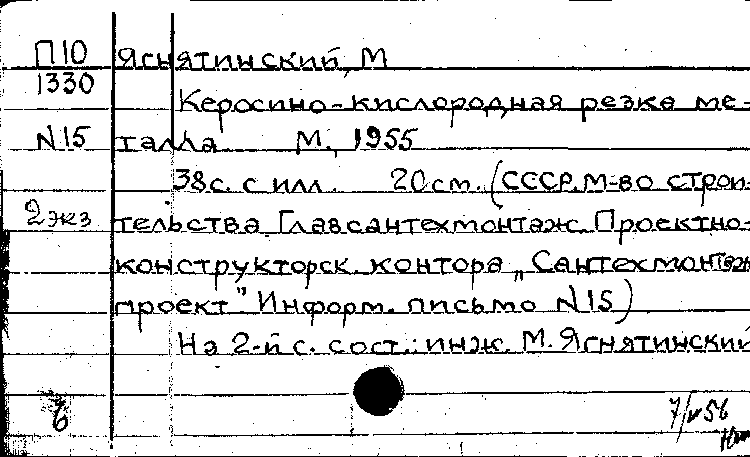 П10 Яснятинский, М
1330
Керосино-кислородная резка ме-
N15 талла М., 1955
38с. с илл. 20см. (СССР. М-во строи-
2экз тельства. Главсантехмонтаж. Проектно-
конструкторск. контора „Сантехмонтаж
проект" Информ. письмо N15)
На 2-й с. сост.: инж. М. Яснятинский
6